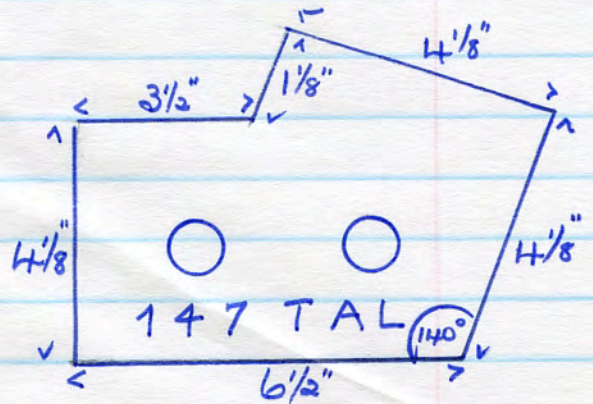 4 1/8"
1 1/8"
3 1/2"
4 1/8"
4 1/8"
147 TAL
140°
6 1/2"